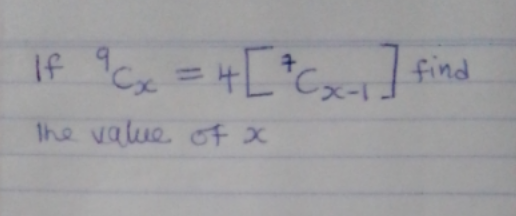 If ⁹Cₓ = 4[⁷Cₓ₋₁] find
the value of x